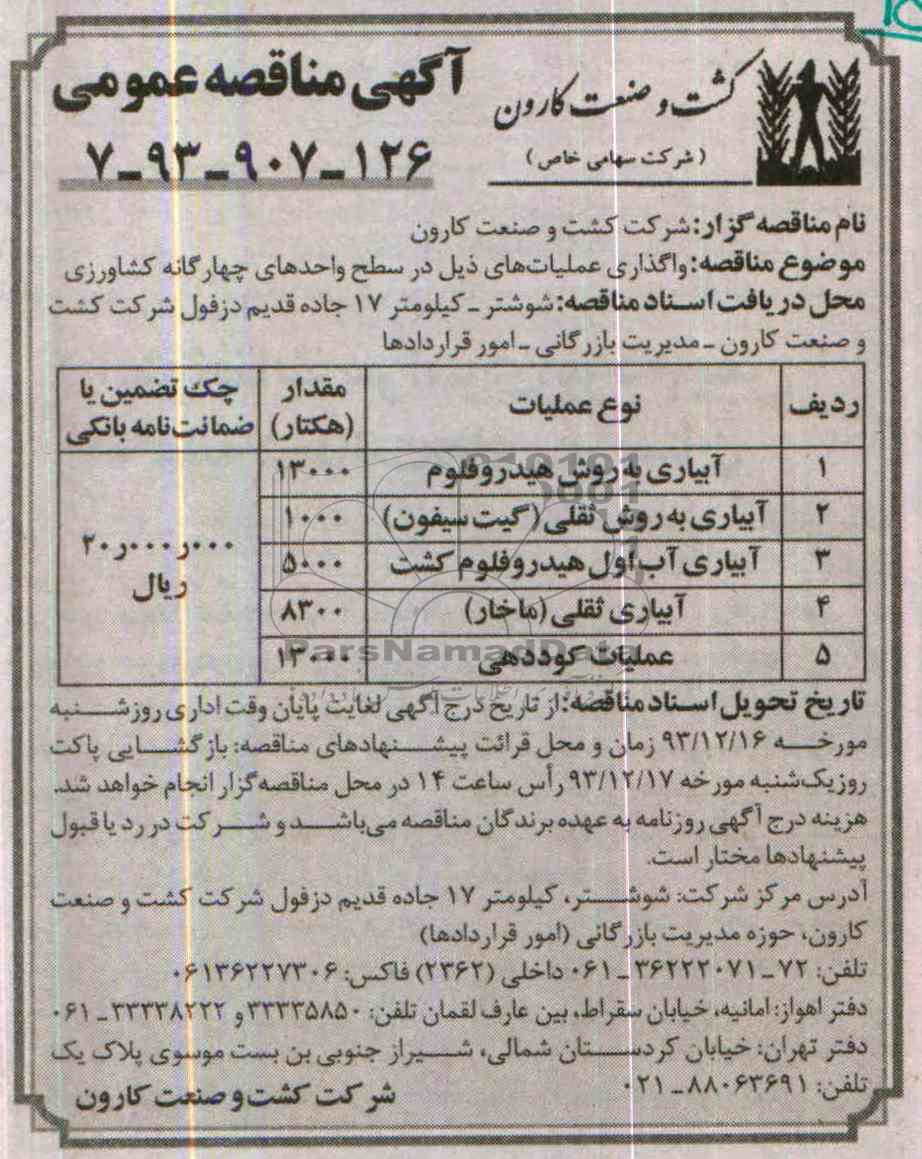 آگهی مناقصه عمومی
۷-۹۳-۹۰۷-۱۲۶
کشت و صنعت کارون
(شرکت سهامی خاص)
نام مناقصه گزار: شرکت کشت و صنعت کارون
موضوع مناقصه: واگذاری عملیات‌های ذیل در سطح واحدهای چهارگانه کشاورزی
محل دریافت اسناد مناقصه: شوشتر ـ کیلومتر ۱۷ جاده قدیم دزفول شرکت کشت
و صنعت کارون ـ مدیریت بازرگانی ـ امور قراردادها
ردیف | نوع عملیات | مقدار (هکتار) | چک تضمین یا ضمانت‌نامه بانکی
۱ | آبیاری به روش هیدروفلوم | ۱۳۰۰۰ | ۲۰ر۰۰۰ر۰۰۰ ریال
۲ | آبیاری به روش ثقلی (گیت سیفون) | ۱۰۰۰
۳ | آبیاری آب اول هیدروفلوم کشت | ۵۰۰۰
۴ | آبیاری ثقلی (ماخار) | ۸۳۰۰
۵ | عملیات کوددهی | ۱۳۰۰۰
ParsNamadData
تاریخ تحویل اسناد مناقصه: از تاریخ درج آگهی لغایت پایان وقت اداری روز شنبه
مورخه ۹۳/۱۲/۱۶ زمان و محل قرائت پیشنهادهای مناقصه: بازگشایی پاکت
روز یکشنبه مورخه ۹۳/۱۲/۱۷ رأس ساعت ۱۴ در محل مناقصه گزار انجام خواهد شد.
هزینه درج آگهی روزنامه به عهده برندگان مناقصه می‌باشد و شرکت در رد یا قبول
پیشنهادها مختار است.
آدرس مرکز شرکت: شوشتر، کیلومتر ۱۷ جاده قدیم دزفول شرکت کشت و صنعت
کارون، حوزه مدیریت بازرگانی (امور قراردادها)
تلفن: ۷۲-۳۶۲۲۲۰۷۱-۰۶۱ داخلی (۲۳۶۲) فاکس: ۰۶۱۳۶۲۲۷۳۰۶
دفتر اهواز: امانیه، خیابان سقراط، بین عارف لقمان تلفن: ۳۳۳۳۵۸۵۰ و ۳۳۳۳۸۲۲۲-۰۶۱
دفتر تهران: خیابان کردستان شمالی، شیراز جنوبی بن بست موسوی پلاک یک
تلفن: ۸۸۰۶۳۶۹۱-۰۲۱
شرکت کشت و صنعت کارون